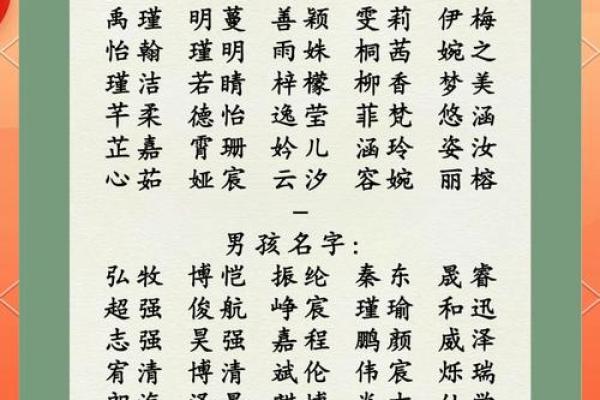 禹瑾 明蔓 善颖 雯莉 伊梅
怡翰 瑾明 雨姝 桐茜 婉之
瑾洁 若晴 梓檬 柳香 梦美
芊柔 德怡 逸莹 菲梵 悠涵
芷嘉 霄珊 妗儿 涵玲 姿汝
心茹 娅宸 云汐 容婉 丽榕
—
男孩名字:
弘牧 博恺 振纶 秦东 晟睿
超强 俊航 峥宸 瑾瑜 和迅
志强 昊强 嘉程 鹏颜 威泽
宥清 博清 斌伦 伟宸 烁瑞